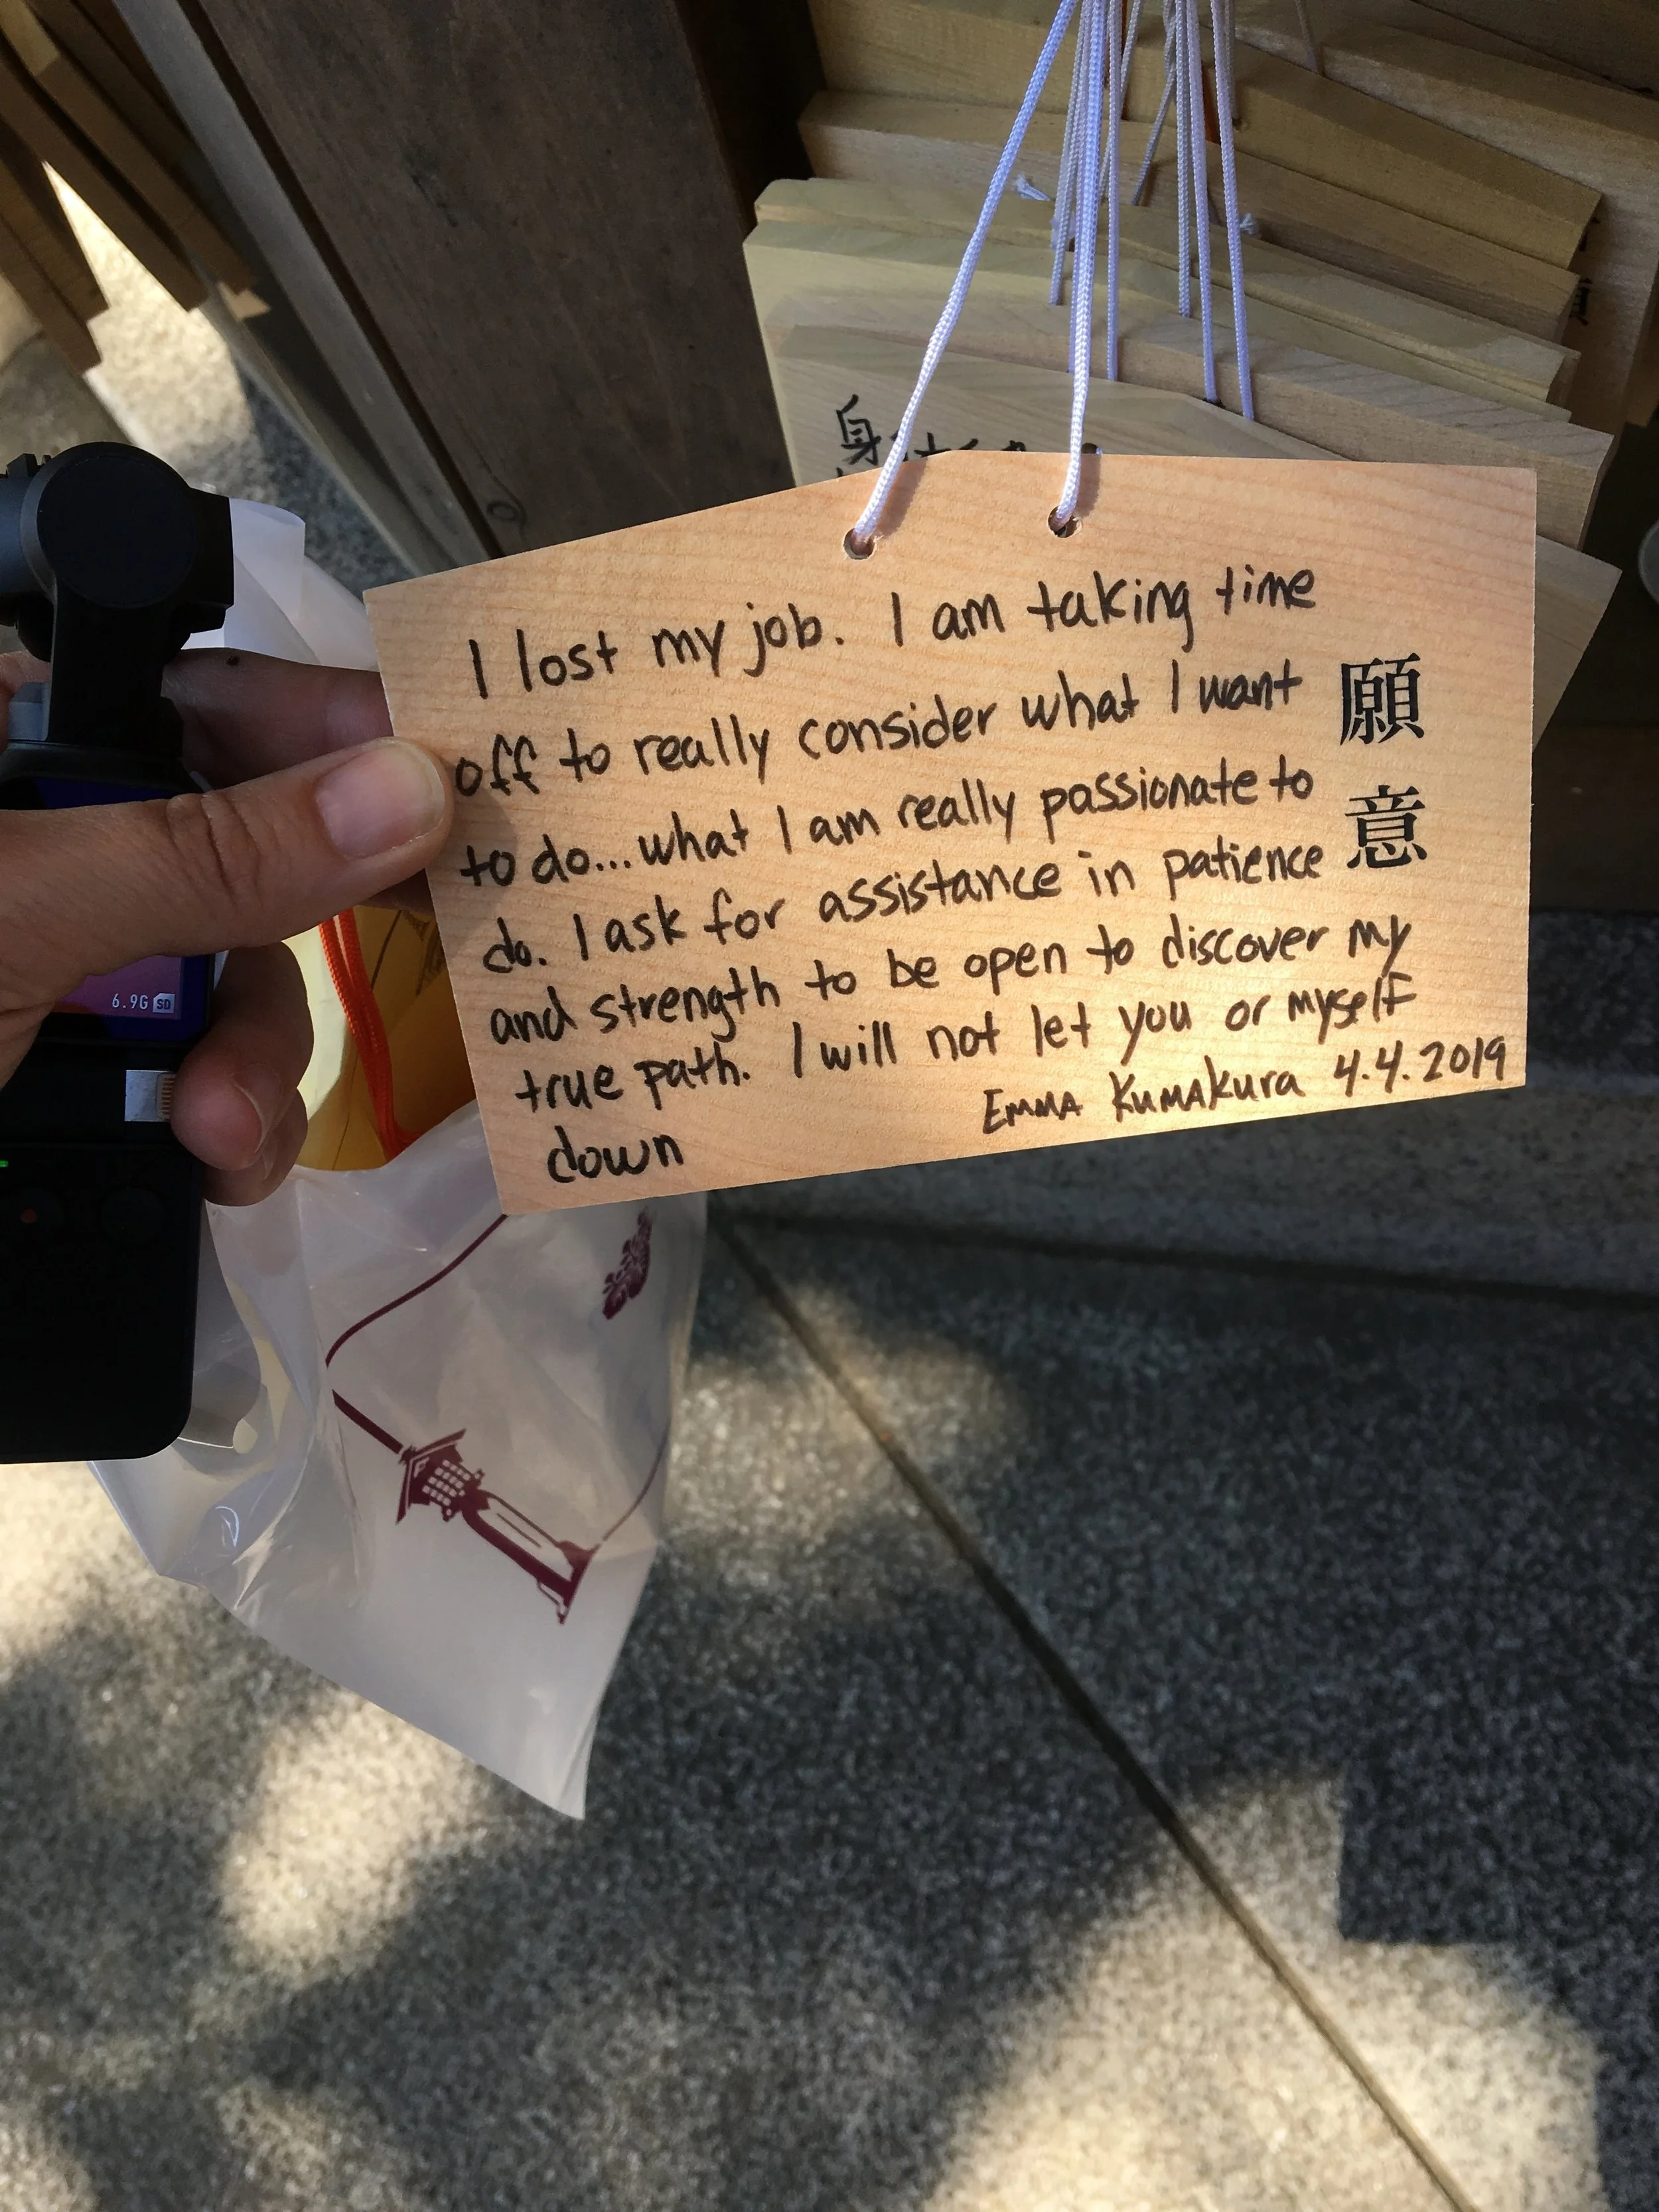 I lost my job. I am taking time
off to really consider what I want
to do...what I am really passionate to
do. I ask for assistance in patience
and strength to be open to discover my
true path. I will not let you or myself
down
EMMA KUMAKURA 4.4.2019
願
意
身
6.9G SD